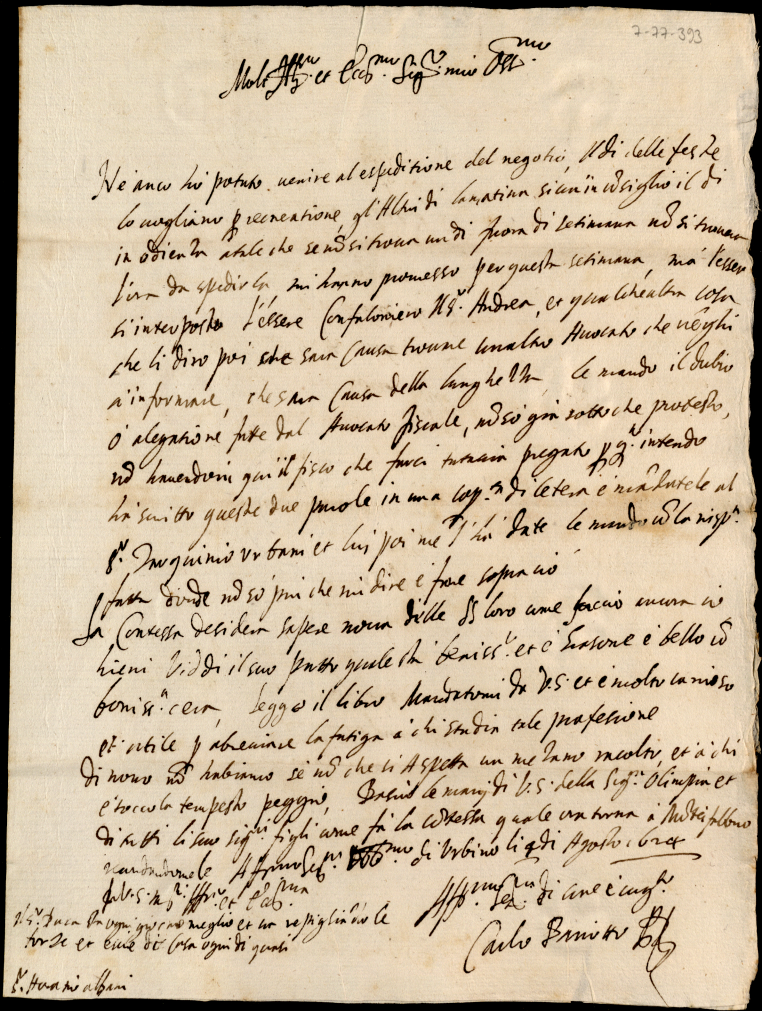 7-77-393
Molt Ill.re et Ecc.mo Sig.r mio Oss.mo
Ne anco hò potuto venire al espeditione del negotio, il di delle feste
lo vogliano p recreatione, gl'Altri di la matina si va in cōsiglio il di
in odienza atale che se nō si trova un di fuora di setimana nō si trovera
l'ora da spedirla mi hanno promesso per questa setimana, mà l'essersi
si interposto l'essere Confaloniero il S.r Andrea, et qualchealtra cosa
che li diro poi che sara Causa trovare unaltro Avocato che vēghi
a informare, che sara Causa della lunghezza le mando il dubio
ò alegatione fatte dal Avocato fiscale, nō sò già sotto che protesto,
nō havendovi qui il fisco che farci tutavia pregato p q.to intendo
ha scritto queste due parole in una cop.ta di letera e mādatele al
S.r Tarquinio Urbani et lui poi me l'hà date le mando cō la risp.ta
fatta donde nō sò piu che mi dire e fare sopra ciò
La Contessa desidera sapere nova delle SS loro come faccio ancora io
hieri viddi il suo putto quale sta beniss.o et è grasone e bello cō
boniss.a cera, leggo il libro Mandatomi da V.S. et è molto curioso
et utile p abreviare la fatiga à chi studia tale profesione
di novo nō habiamo se nō che si Aspetta un mezano racolto, et à chi
è toccò la tempesta peggio, Bascio le mani di V.S. della Sig.ra Olimpia et
di tutti li suo sig.ri figli come fà la cōtessa quale ora torna à Mōtefallono
racordandomele di Urbino li 9 di Agosto
di V.S. M.to Ill.re et Ecc.ma
Aff.mo Ser.re di core è cug.no
Carlo
Il S.r Duca Va ogni giorno meglio et va repigliādo le
forze et esce di casa ogni di quasi
S.r Horatio albani